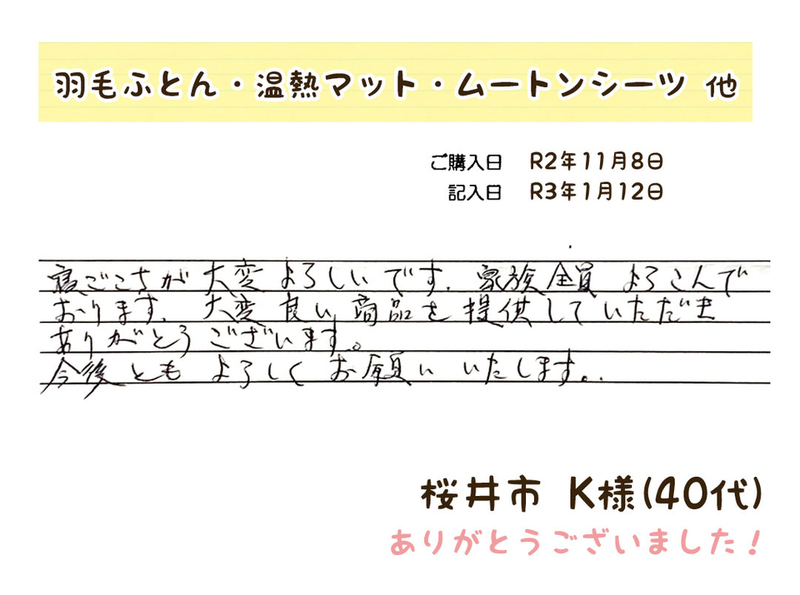 羽毛ふとん・温熱マット・ムートンシーツ 他
ご購入日 R2年11月8日
記入日 R3年1月12日
寝ごこちが大変よろしいです。家族全員よろこんで
おります。大変良い商品を提供していただき
ありがとうございます。
今後ともよろしくお願いいたします。
桜井市 K様(40代)
ありがとうございました！